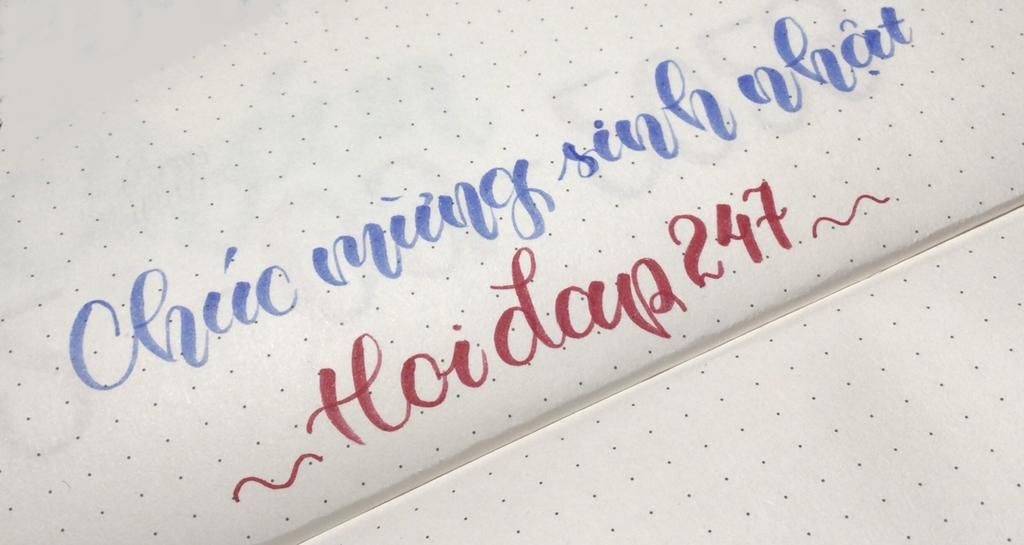 Chúc mừng sinh nhật
~ Hoidap247 ~